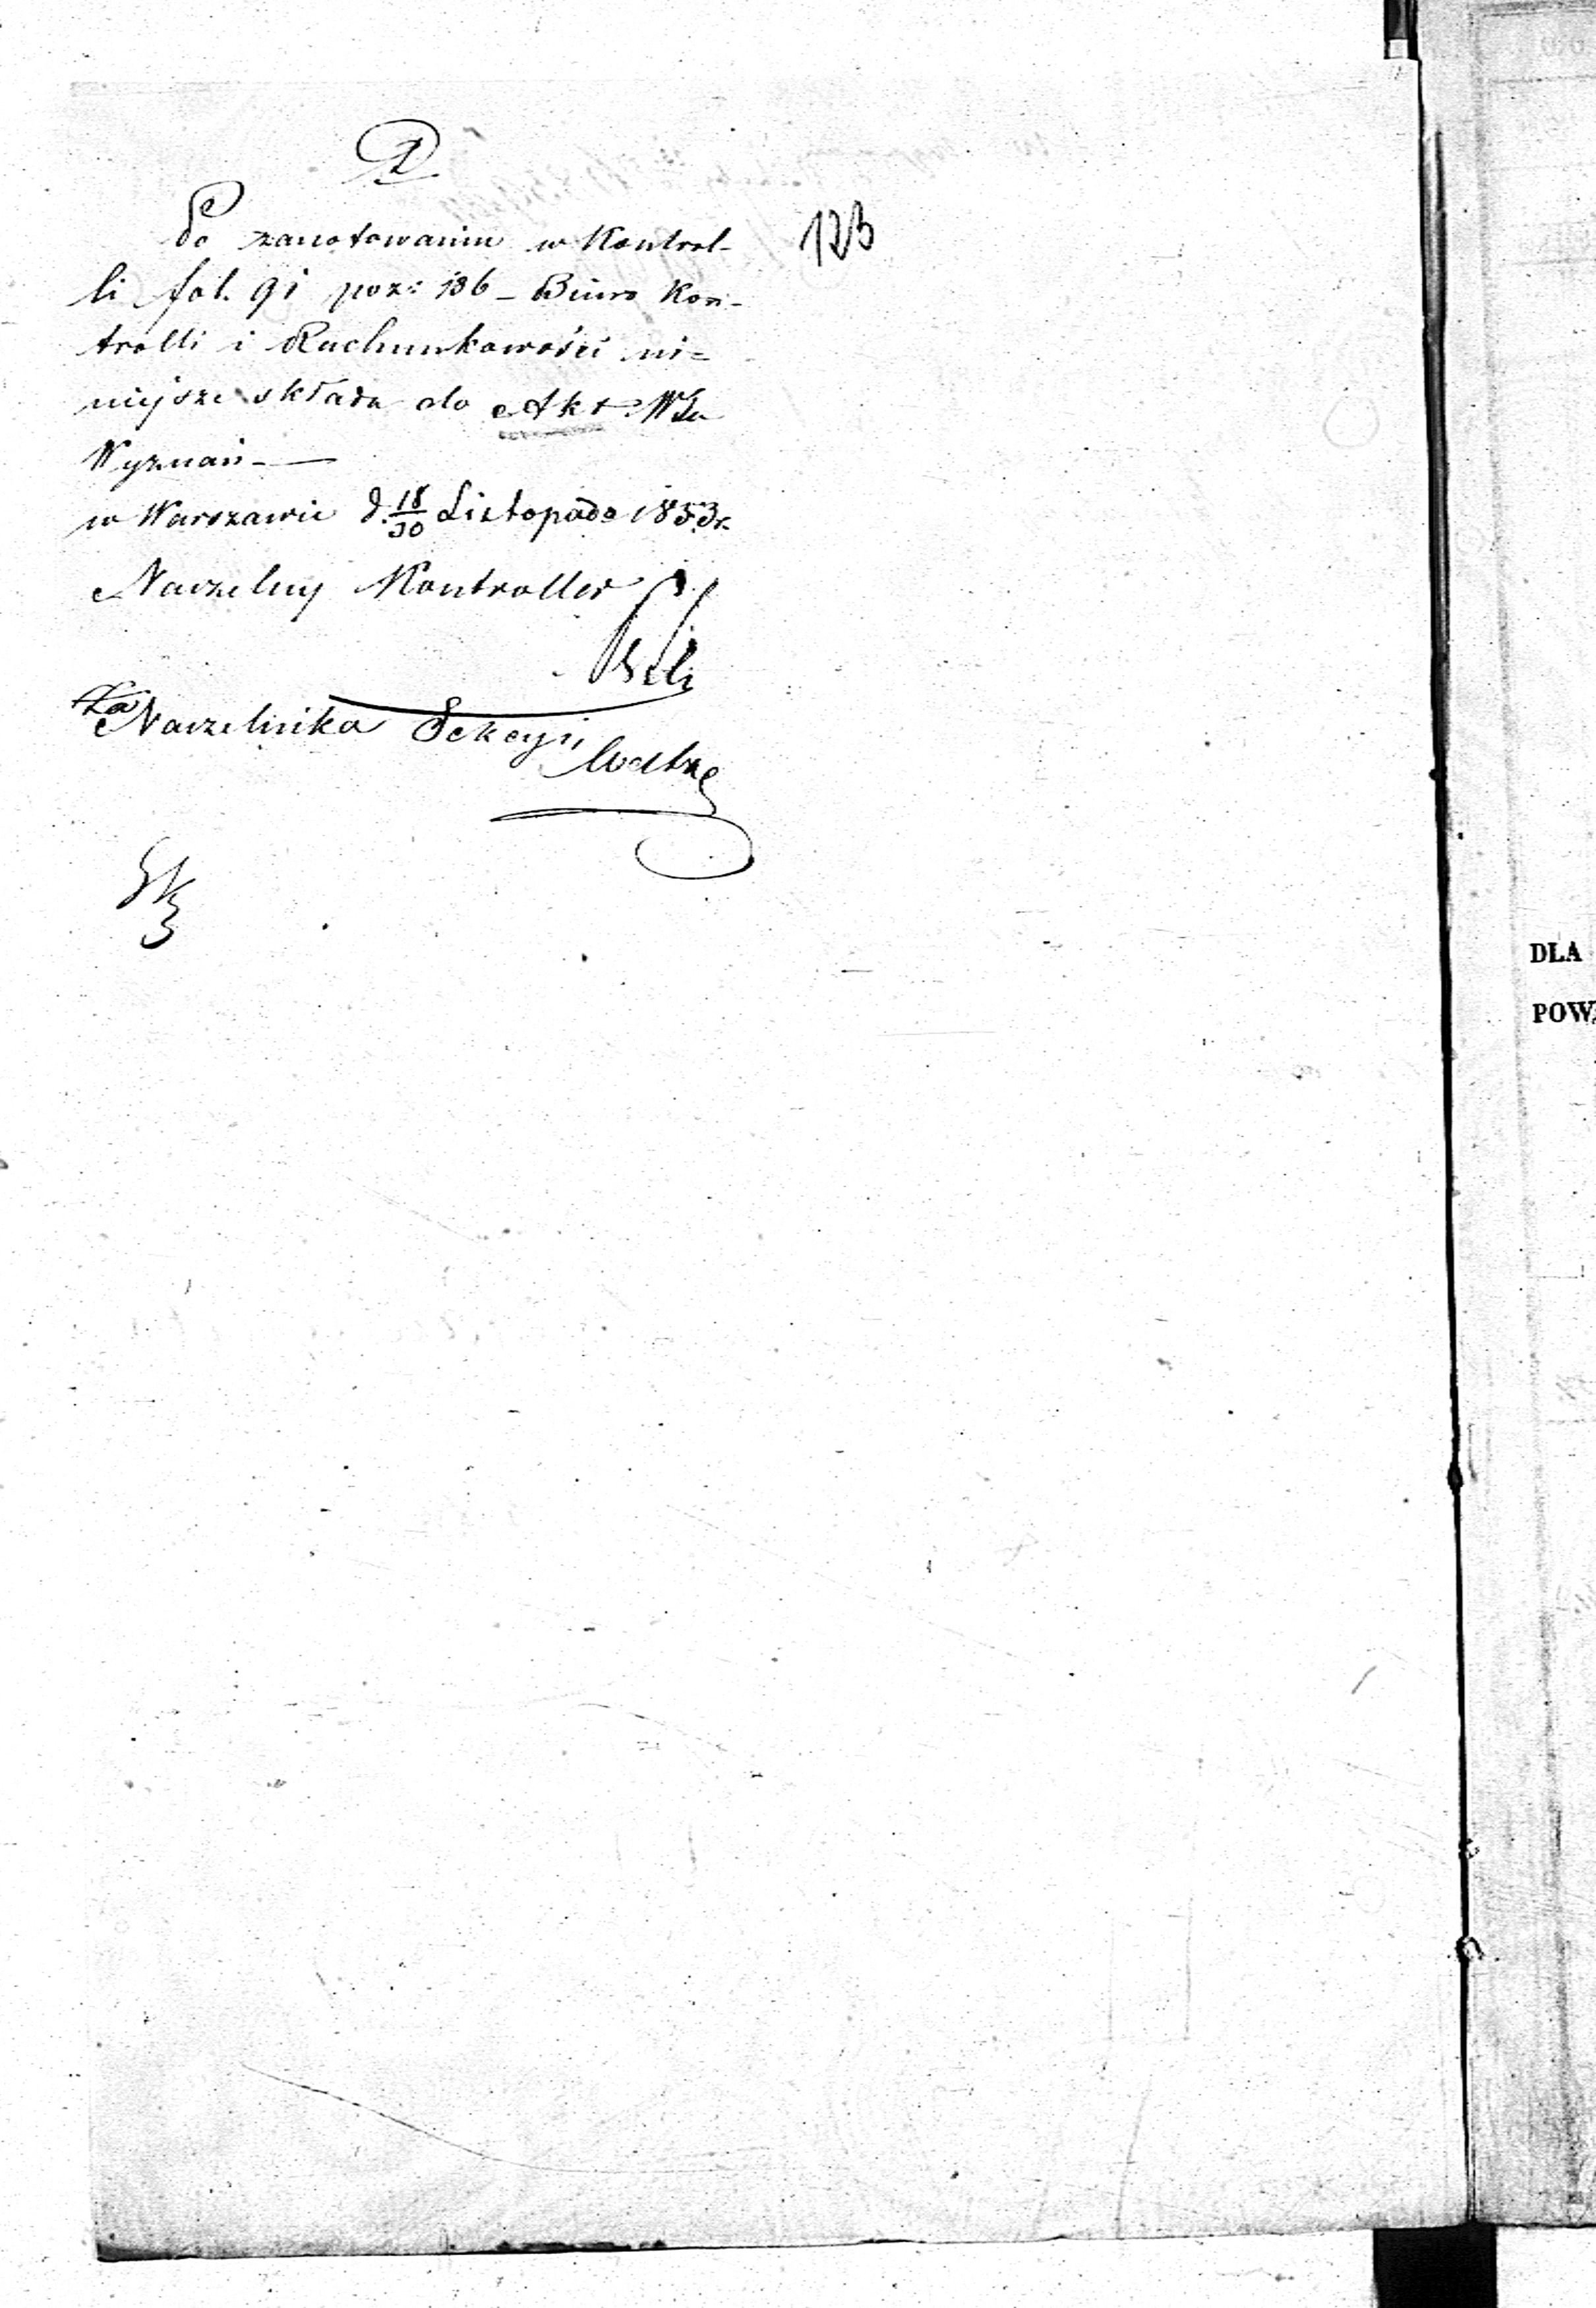 Po zanotowaniu w Kontrol-
li fol. 91 poz: 186 - Biuro Kon-
trolli i Rachunkowości ni=
niejsze składa do Akt
Wyznań -
w Warszawie d. 18/30 Listopada 1853 r.
Naczelny Kontroller
Za Naczelnika Sekcyi
123
DLA
POW